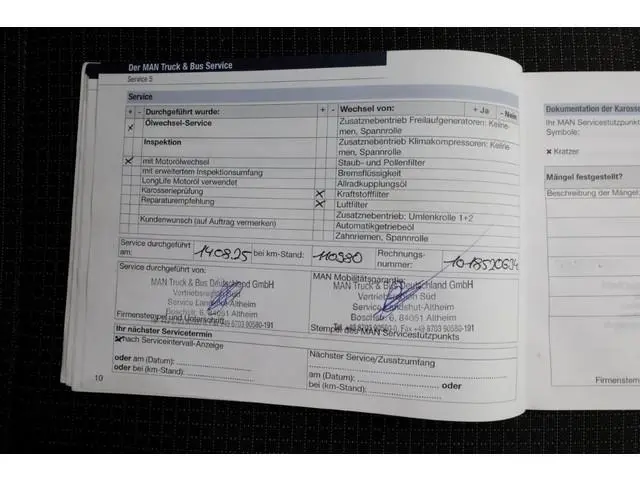 Der MAN Truck & Bus Service
Service 5
Service
+ - Durchgeführt wurde:
Ölwechsel-Service
Inspektion
mit Motorölwechsel
mit erweitertem Inspektionsumfang
LongLife Motoröl verwendet
Karosserieprüfung
Reparaturempfehlung
Kundenwunsch (auf Auftrag vermerken)
+ - Wechsel von: + Ja - Nein
Zusatznebentrieb Freilaufgeneratoren: Keilrie-
men, Spannrolle
Zusatznebentrieb Klimakompressoren: Keilrie-
men, Spannrolle
Staub- und Pollenfilter
Bremsflüssigkeit
Allradkupplungsöl
Kraftstofffilter
Luftfilter
Zusatznebentrieb: Umlenkrolle 1+2
Automatikgetriebeöl
Zahnriemen, Spannrolle
Service durchgeführt
am: 14.08.25 bei km-Stand: 110980 Rechnungs-
nummer:
Service durchgeführt von:
MAN Truck & Bus Deutschland GmbH
Vertriebsregion Süd
Service Landshut-Altheim
Boschstr. 6, 84051 Altheim
Firmenstempel und Unterschrift
MAN Mobilitätsgarantie:
MAN Truck & Bus Deutschland GmbH
Vertriebsregion Süd
Service Landshut-Altheim
Boschstr. 6, 84051 Altheim
Tel. +49 8703 90580-0, Fax +49 8703 90580-191
Stempel des MAN Servicestützpunkts
Ihr nächster Servicetermin
nach Serviceintervall-Anzeige
oder am (Datum):
oder bei (km-Stand):
Nächster Service/Zusatzumfang
am (Datum): oder
bei (km-Stand):
10
Dokumentation der Karosse
Ihr MAN Servicestützpunkt
Symbole:
x Kratzer
Mängel festgestellt?
Beschreibung der Mängel:
Firmenstem